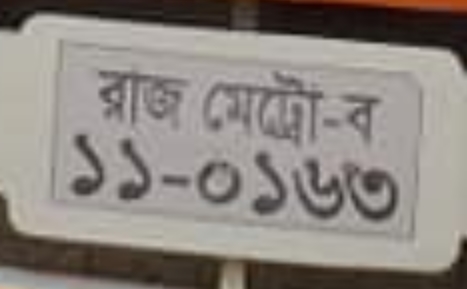 রাজ মেট্রো-ব
১১-০১৬৩